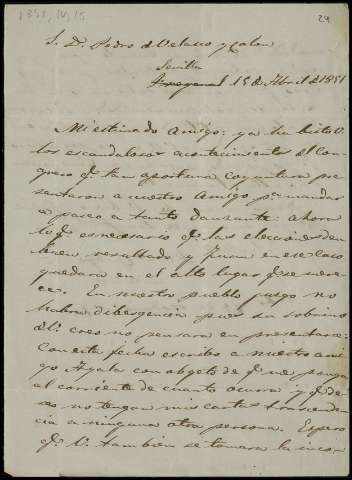 1851, IV, 15
29
S. D. Pedro de Velasco y Colon
Sevilla
Fregenal 15 de Abril de 1851
Mi estimado Amigo: ya ha bisto V.
los escandalosos acontecimientos del Con
greso qe. tan oportuna coyuntura pre
sentaron a nuestro Amigo pa. mandar
a paseo a tanto danzante: ahora
lo qe. es necesario qe. las elecciones den
buen resultado y Juan en ese caso
quedara en el alto lugar qe. se mere
ce. En nuestro pueblo juzgo no
habra dibergencia pues su sobrino
de V. creo no pensara en presentarse:
Con esta fecha escribo a nuestro ami
go Ayala con objeto de qe. me ponga
al corriente de cuanto ocurra y qe. de
seo no tengan mis cartas trascenden
cia a ninguna otra persona. Espero
qe. V. tambien se tomara la incon